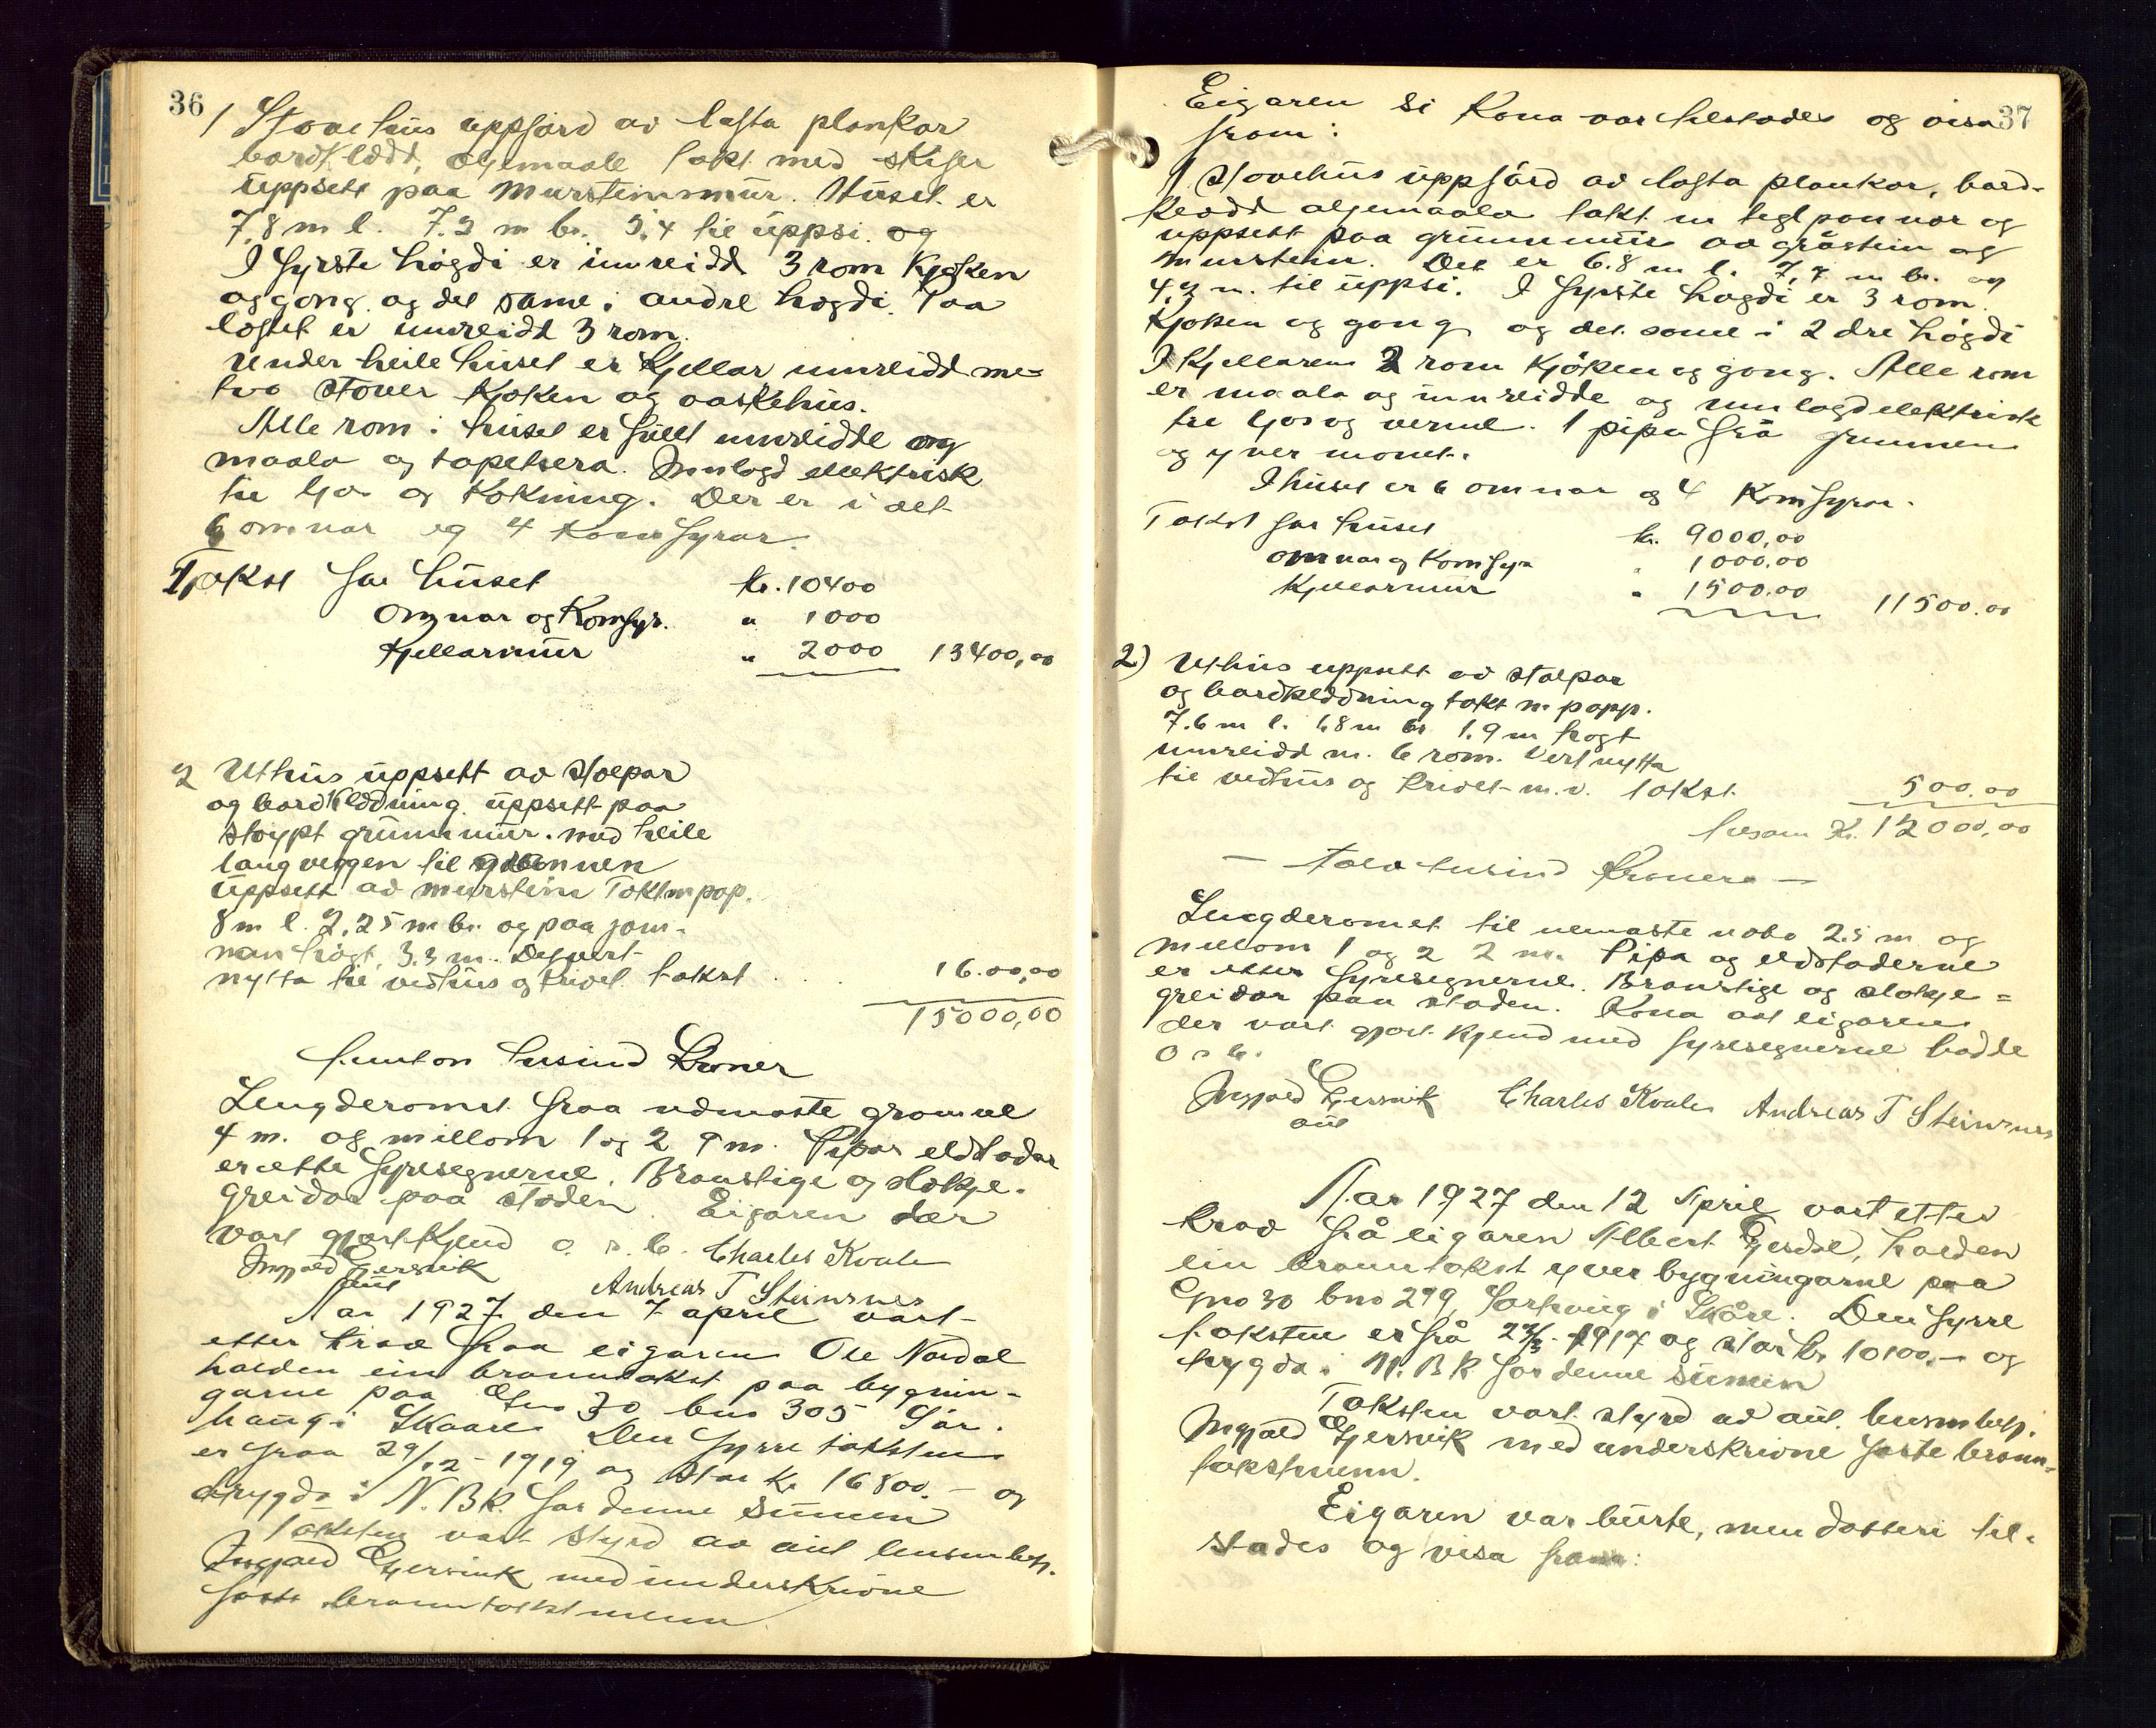 36
1 Stovehus uppførd av lafta plankar
bordklædd, oljemaale takt med skifer
uppsett paa mursteinmur. Huset er
7,8 m l. 7.3 m br. 5,4 til uppsi. og
I fyrste høgdi er innreidd 3 rom Kjøken
og gong og det same i andre høgdi. Paa
loftet er innreidt 3 rom.
Under heile huset er Kjellar innreidd me-
tvo stover Kjøken og vaskehus.
Alle rom i huset er fullt innreidde og
maala og tapetsera. Innlagd elektrisk
til ljos og Kokning. Der er i det
6 omnar og 4 komfyrar.
Takst for huset kr. 10400
Omnar og Komfyr. " 1000
Kjellarmur " 2000 13400,00
2 Uthus uppsett av stolpar
og bordklædning. uppsett paa
støypt grunnmur. med heile
langveggen til grannen
uppsett av murstein Takt m pap.
8 m l. 2,25 m br. og paa jom-
nan høgt 3.3 m. Det vert
nytta til vedhus og privet takst 16.00,00
15000,00
femton tusind Kroner
Lengderomet fraa næmaste granne
4 m. og millom 1 og 2 9 m. Pipar eldstadar
er ette fyresegnerne. Branstige og sløkje-
greidor paa staden. Eigaren der
vart gjort Kjend o. s. b. Charles Kvale
Ingvald Gjersvik Andreas T Steinsnes
aut
Aar 1927 den 7 april vart
etter krav fraa eigaren Ole Nordal
halden ein branntakst paa bygnin-
garne paa Gno 30 bno 305 Sør-
haug i Skaare. Den fyrre taksten
er fraa 29/12-1919 og stor kr 16800.- og
trygda i N.B.K. for denne summen
Taksten vart styrd av aut lensmbetj.
Ingvald Gjersvik med underskrivne
faste branntakstmenn.
37
Eigaren si Kona var tilstades og visa
fram:
1 Stovehus uppførd av lafta plankar, bord-
klædd oljemaala takt m teglpannor og
uppsett paa grunnmur av gråstein og
murstein. Det er 6.8 m l. 7,7 m br. og
4,3 m. til uppsi. I fyrste høgdi er 3 rom
Kjøken og gong og det same i 2 dre høgdi
I Kjellaren 2 rom Kjøken og gong. Alle rom
er maala og innreidde og innlagd elektrisk
til ljos og verme. 1 pipa frå grunnen
og yver mønet.
I huset er 6 omnar og 4 Komfyrar.
Takst for huset kr. 9000,00
omnar og Komfyr " 1000.00
Kjellarmur " 1500.00 11500.00
2) Uthus uppsett av stolpar
og bordklædning takt m papp.
7.6 m l. 1.8 m br 1.9 m høgt
innreidd m. 6 rom. Vert nytta
til vedhus og privet m.v. Takst 500.00
tilsam Kr. 12000,00
— tolv tusind Kroner —
Lengderomet til næmaste nabo 2.5 m og
millom 1 og 2 2 m. Pipa og eldstaderne
er etter fyresegnerne. Branstige og sløkje-
greidor paa staden. Kona aat eigaren
der vart gjort kjend med fyresegnerne hadde
o s b.
Ingvald Gjersvik Charles Kvale Andreas T Steinsnes
aut
Aar 1927 den 12 April vart etter
krav frå eigaren Albert Gjerdsl, halden
ein branntakst yver bygningarne paa
Gno 30 bno 299 Sørhaug i Skåre. Den fyrre
taksten er frå 1917 og stor kr 10100.- og
trygda i N.B.K for denne summen
Taksten vart styrd av aut. lensmbetj.
Ingvald Gjersvik med underskrivne faste brann-
takstmenn.
Eigaren var burte, men dotteri til-
stades og visa fram: